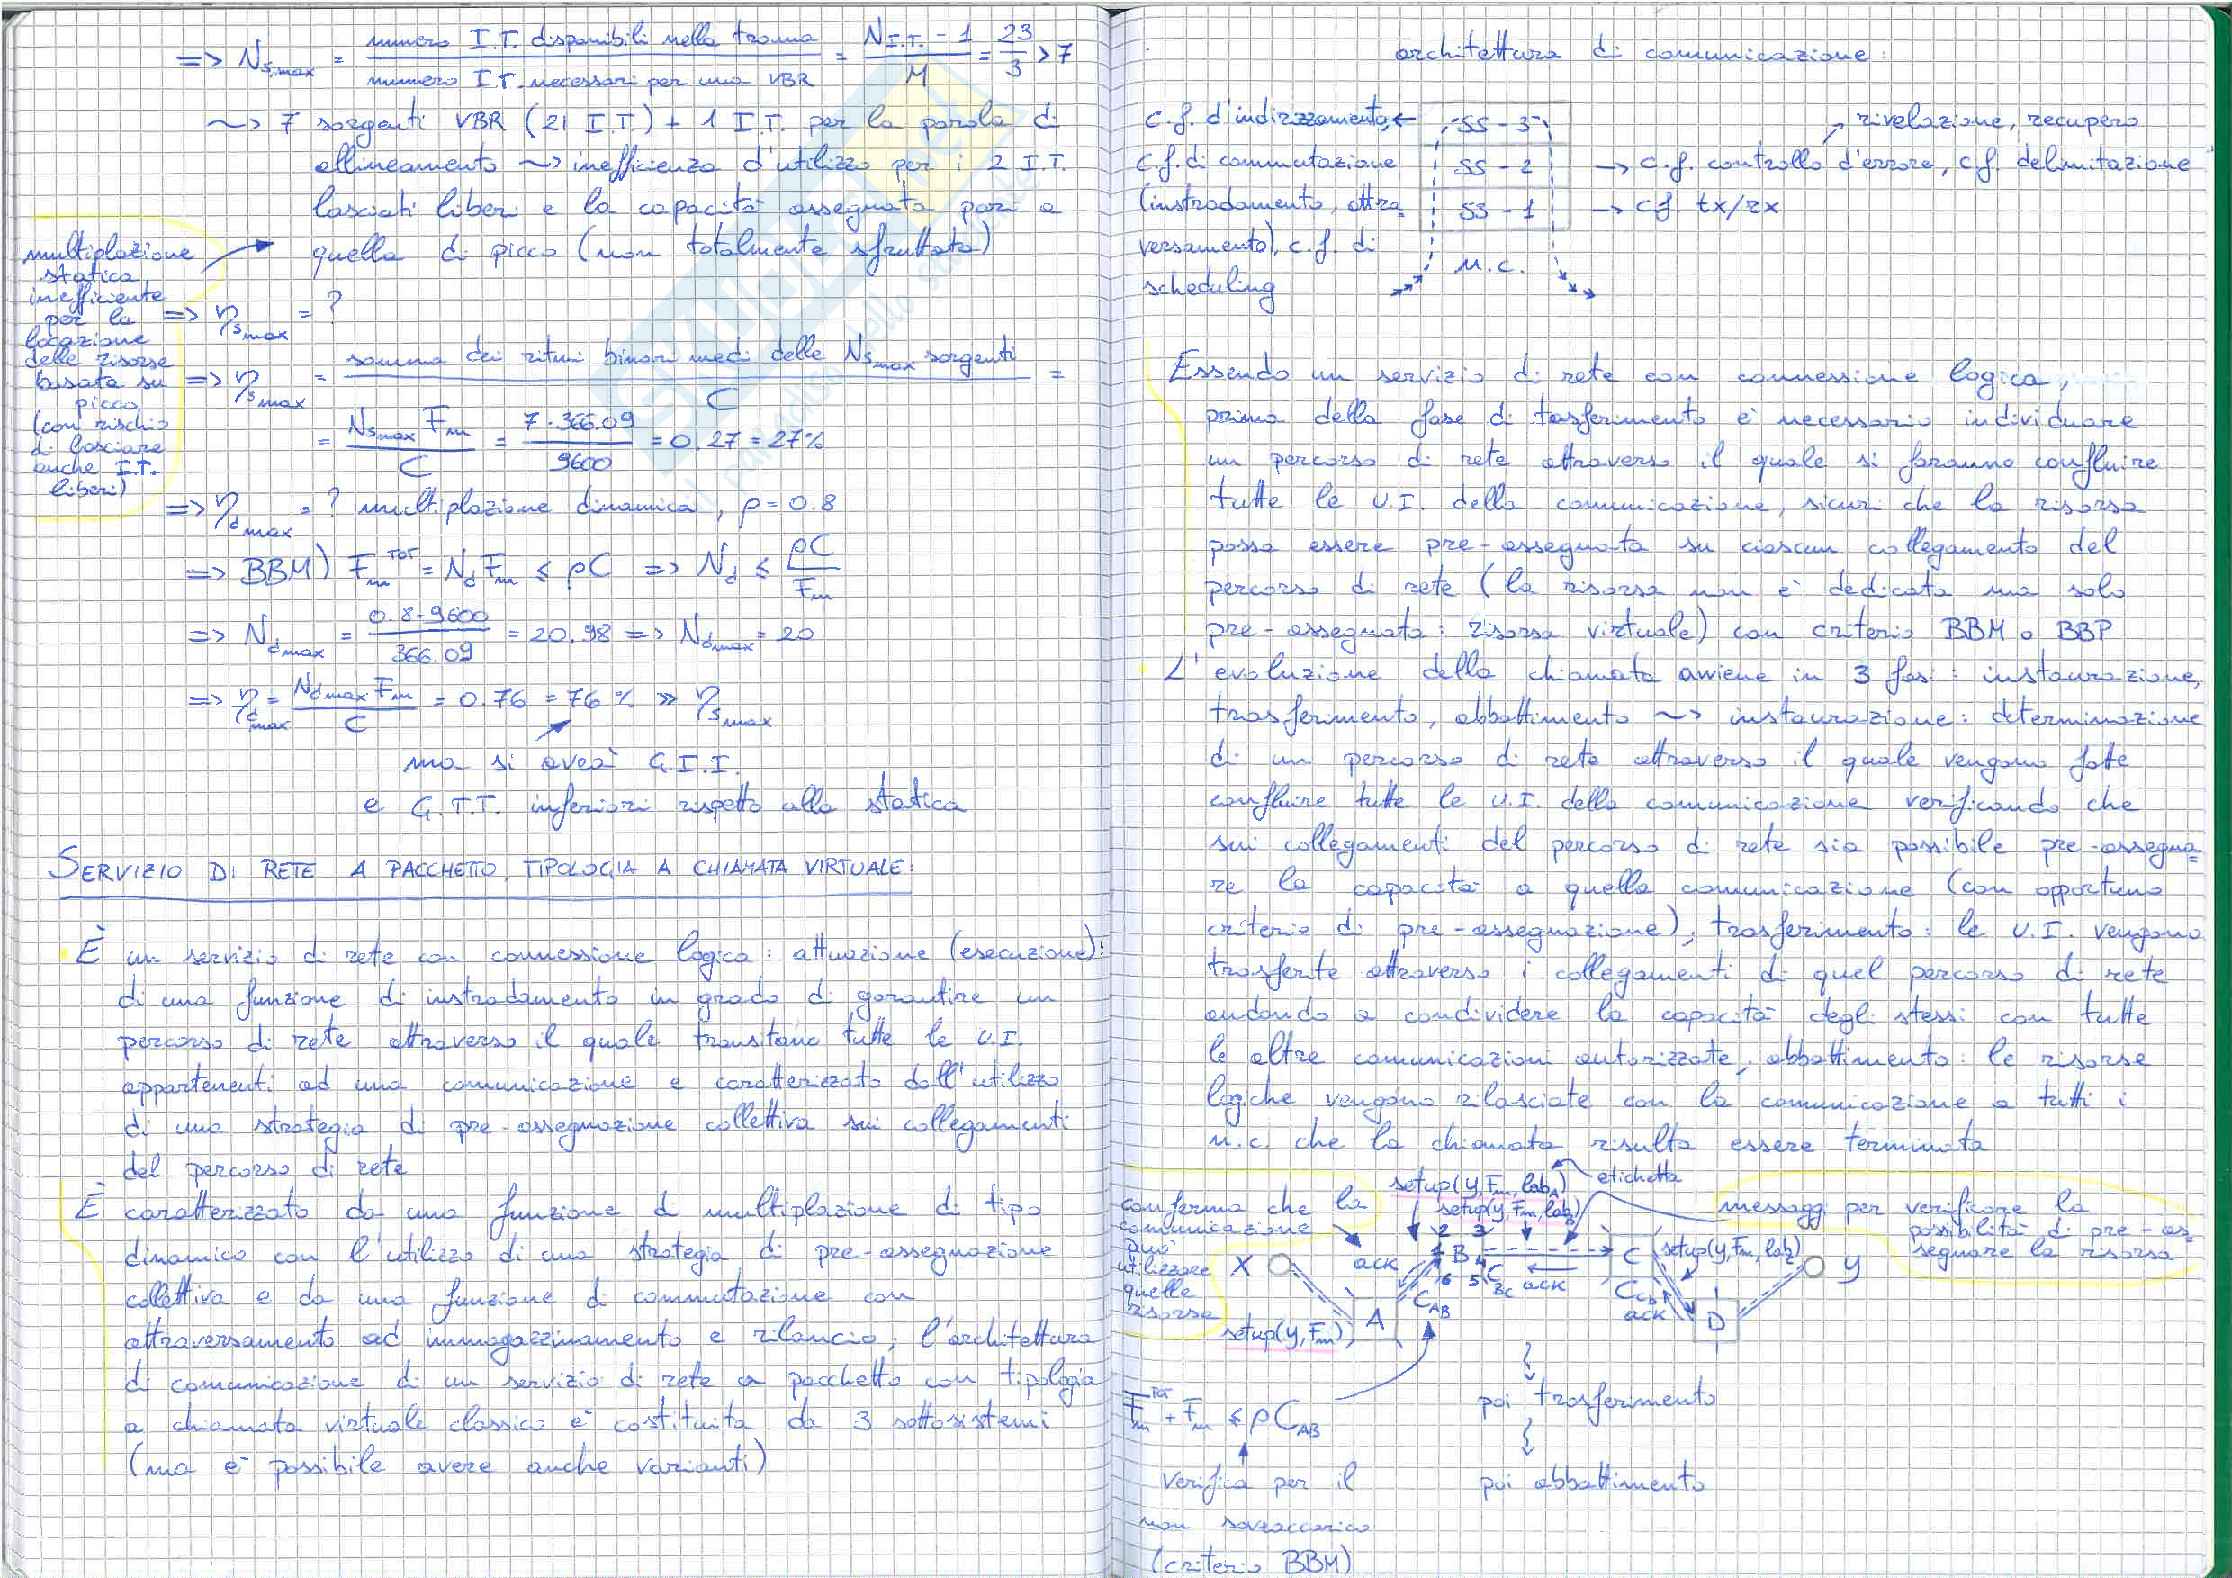 => Ns,max = numero I.T. disponibili nella trama / numero I.T. necessari per una VBR = (N I.T. - 1) / M = 23/3 > 7
~> 7 sorgenti VBR (21 I.T.) + 1 I.T. per la parola di
allineamento ~> inefficienza d'utilizzo per i 2 I.T.
lasciati liberi e la capacità assegnata pari a
quella di picco (non totalmente sfruttata)
multiplazione
statica
inefficiente
per la
locazione
delle risorse
basata su
picco
(con rischio
di lasciare
anche I.T.
liberi)
=> ηs max = ?
=> ηs max = somma dei ritmi binari medi delle Ns max sorgenti / C =
= Ns max Fm / C = 7·366.09 / 9600 = 0.27 = 27%
=> ηd max = ? multiplazione dinamica, ρ = 0.8
=> BBM) Fm TOT = Nd Fm ≤ ρC => Nd ≤ ρC / Fm
=> Nd max = 0.8·9600 / 366.09 = 20.98 => Nd max = 20
=> ηd max = Nd max Fm / C = 0.76 = 76% >> ηs max
ma si avrà G.I.I.
e G.T.T. inferiori rispetto alla statica
SERVIZIO DI RETE A PACCHETTO, TIPOLOGIA A CHIAMATA VIRTUALE:
È un servizio di rete con connessione logica: attuazione (esecuzione)
di una funzione di instradamento in grado di garantire un
percorso di rete attraverso il quale transitano tutte le U.I.
appartenenti ad una comunicazione e caratterizzato dall'utilizzo
di una strategia di pre-assegnazione collettiva sui collegamenti
del percorso di rete
È caratterizzato da una funzione di multiplazione di tipo
dinamico con l'utilizzo di una strategia di pre-assegnazione
collettiva e da una funzione di commutazione con
attraversamento ad immagazzinamento e rilancio; l'architettura
di comunicazione di un servizio di rete a pacchetto con tipologia
a chiamata virtuale classico è costituita da 3 sottosistemi
(ma è possibile avere anche varianti)
architettura di comunicazione:
c.f. d'indirizzamento, ← SS-3
c.f. di commutazione
(instradamento, attra
versamento), c.f. di
scheduling
rivelazione, recupero
SS-2 → c.f. controllo d'errore, c.f. delimitazione
SS-1 → cf tx/rx
N.C.
Essendo un servizio di rete con connessione logica,
prima della fase di tasferimento è necessario individuare
un percorso di rete attraverso il quale si faranno confluire
tutte le U.I. della comunicazione, sicuri che la risorsa
possa essere pre-assegnata su ciascun collegamento del
percorso di rete (la risorsa non è dedicata ma solo
pre-assegnata: risorsa virtuale) con criterio BBM o BBP
L'evoluzione della chiamata avviene in 3 fasi: instaurazione,
trasferimento, abbattimento ~> instaurazione: determinazione
di un percorso di rete attraverso il quale vengono fatte
confluire tutte le U.I. della comunicazione verificando che
sui collegamenti del percorso di rete sia possibile pre-assegna=
re la capacità a quella comunicazione (con opportuno
criterio di pre-assegnazione), trasferimento: le U.I. vengono
trasferite attraverso i collegamenti di quel percorso di rete
andando a condividere la capacità degli stessi con tutte
le altre comunicazioni autorizzate, abbattimento: le risorse
logiche vengono rilasciate con la comunicazione a tutti i
N.C. che la chiamata risulta essere terminata
conferma che la
comunicazione
può
utilizzare
quelle
risorse
setup(y, Fm, labA)
etichetta
setup(y, Fm, labB)
messaggi per verificare la
possibilità di pre-as=
segnare la risorsa
X
ack
1 2 3 B 4 5 6
C BC
ack
C
setup(y, Fm, lab
y
setup(y, Fm)
A
C AB
C CD
ack
D
Fm TOT + Fm ≤ ρ C AB
verifica per il
non sovraccarico
(criterio BBM)
poi trasferimento
poi abbattimento